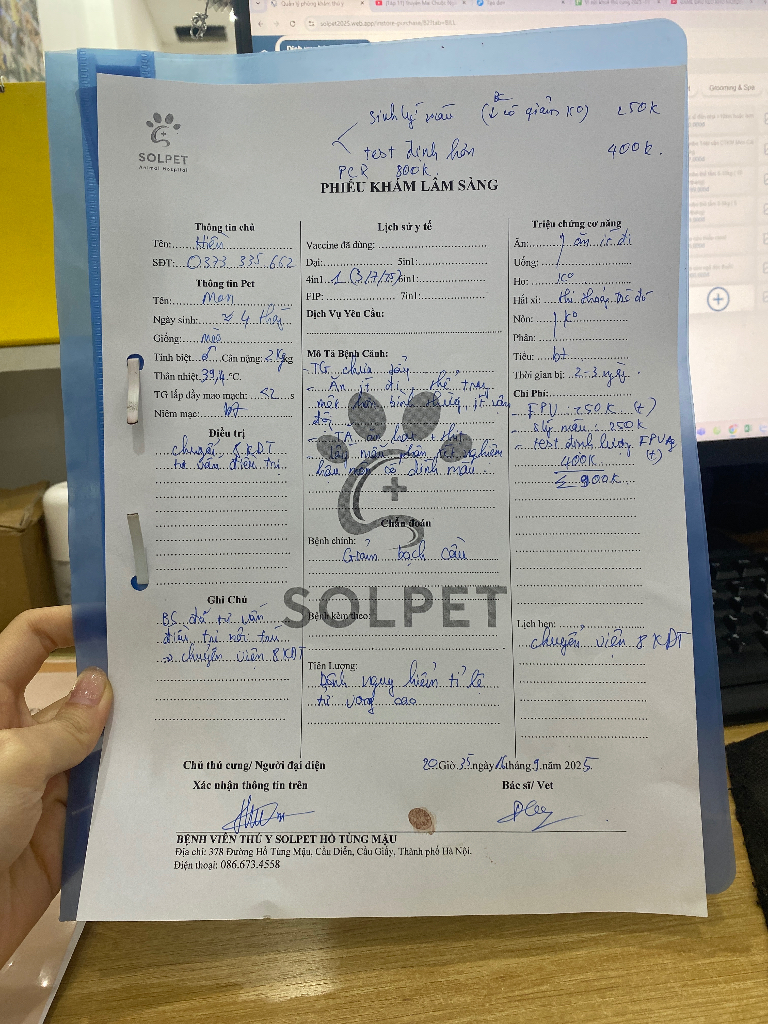 solpet2025.web.app/restore-purchase/82?tab=BILL
Grooming & Spa
SOLPET
Animal Hospital
Sinh lý máu (BC có giảm ko) 250K
test định lượng 400K.
PCR 800K.
PHIẾU KHÁM LÂM SÀNG
Thông tin chủ
Tên: Hiền
SĐT: 0373 335 662
Thông tin Pet
Tên: Mon
Ngày sinh: ≈ 4 tháng
Giống: mèo
Tính biệt ♂ Cân nặng: 2 kg
Thân nhiệt 39,4 °C.
TG lấp đầy mao mạch: <2 s
Niêm mạc: bt
Điều trị
chuyển 8 KĐT
tư vấn điều trị
Ghi Chú
BS đã tư vấn
điều trị nội trú
→ chuyển viện 8 KĐT
Lịch sử y tế
Vaccine đã dùng:
Dại: 5in1:
4in1 1 (3/7/25) 6in1:
FIP: 7in1:
Dịch Vụ Yêu Cầu:
Mô Tả Bệnh Cảnh:
- TG chưa tẩy
- Ăn ít đi, thể trạng
mệt hơn bình thường
Chẩn đoán
Bệnh chính:
Giảm bạch cầu
SOLPET
Bệnh kèm theo:
Tiên Lượng:
Bệnh nguy hiểm tỉ lệ
tử vong cao
Triệu chứng cơ năng
Ăn: ăn ít đi
Uống:
Ho: ko
Hắt xì: thi thoảng
Nôn: ko
Phân:
Tiểu: bt
Thời gian bị: 2-3 ngày
Chi Phí:
FPV: 250K (+)
- slý máu: 250K
- test định lượng FPV Ag
400K (+)
Σ 900K
Lịch hẹn:
chuyển viện 8 KĐT
Chủ thú cưng/ Người đại diện
Xác nhận thông tin trên
20 Giờ 35 ngày 16 tháng 9 năm 2025
Bác sĩ/ Vet
BỆNH VIỆN THÚ Y SOLPET HỒ TÙNG MẬU
Địa chỉ: 378 Đường Hồ Tùng Mậu, Cầu Diễn, Cầu Giấy, Thành phố Hà Nội.
Điện thoại: 086.673.4558